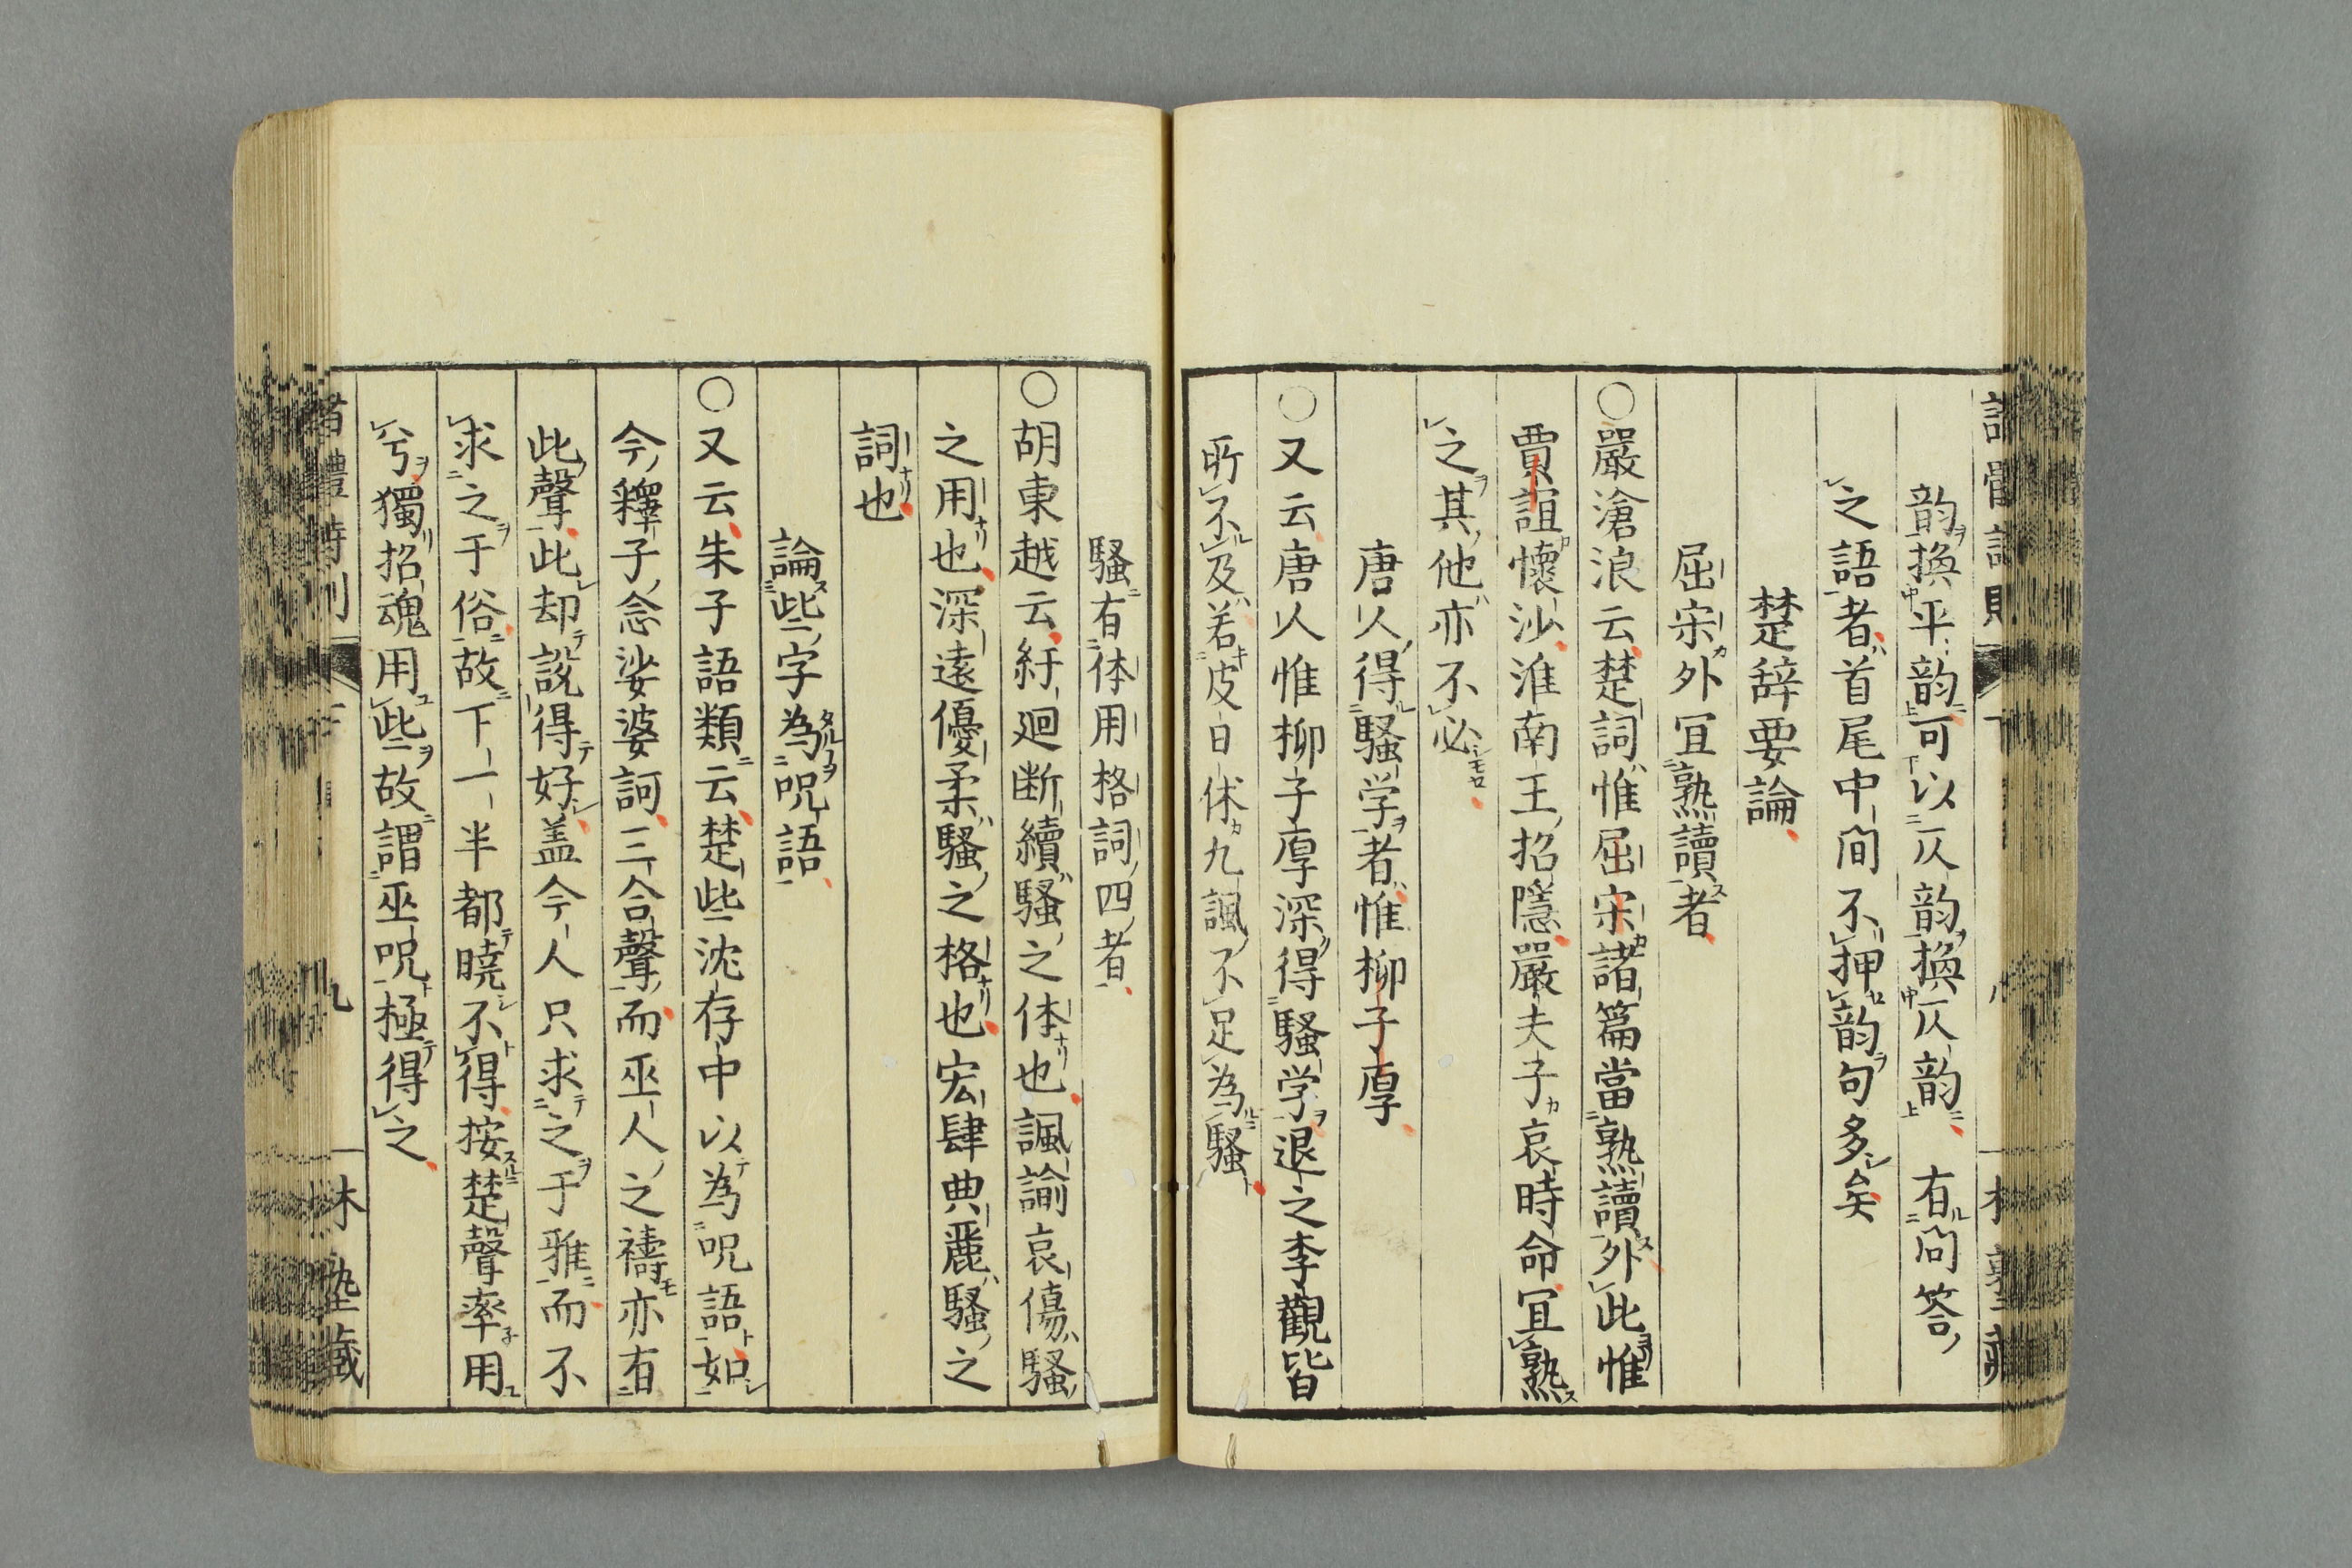 韵換平韵可以仄韵換仄韵有問答
之語者首尾中間不押韵句多矣
楚辞要論
屈宋外宜熟讀者
○嚴滄浪云楚詞惟屈宋諸篇當熟讀外此惟
賈誼懷沙淮南王招隱嚴夫子哀時命宜熟
之其他亦不必
唐人得騷学者惟柳子厚
○又云唐人惟柳子厚深得騷学退之李觀皆
所不及若皮日休九諷不足為騷
騷有体用格詞四者
○胡東越云紆廻断續騷之体也諷諭哀傷騷
之用也深遠優柔騷之格也宏肆典麗騷之
詞也
論些字為呪語
○又云朱子語類云楚些沈存中以為呪語如
今釋子念娑婆訶三合聲而巫人之禱亦有
此聲此却說得好盖今人只求之于雅而不
求之于俗故下一半都曉不得按楚聲率用
兮獨招魂用些故謂巫呪極得之